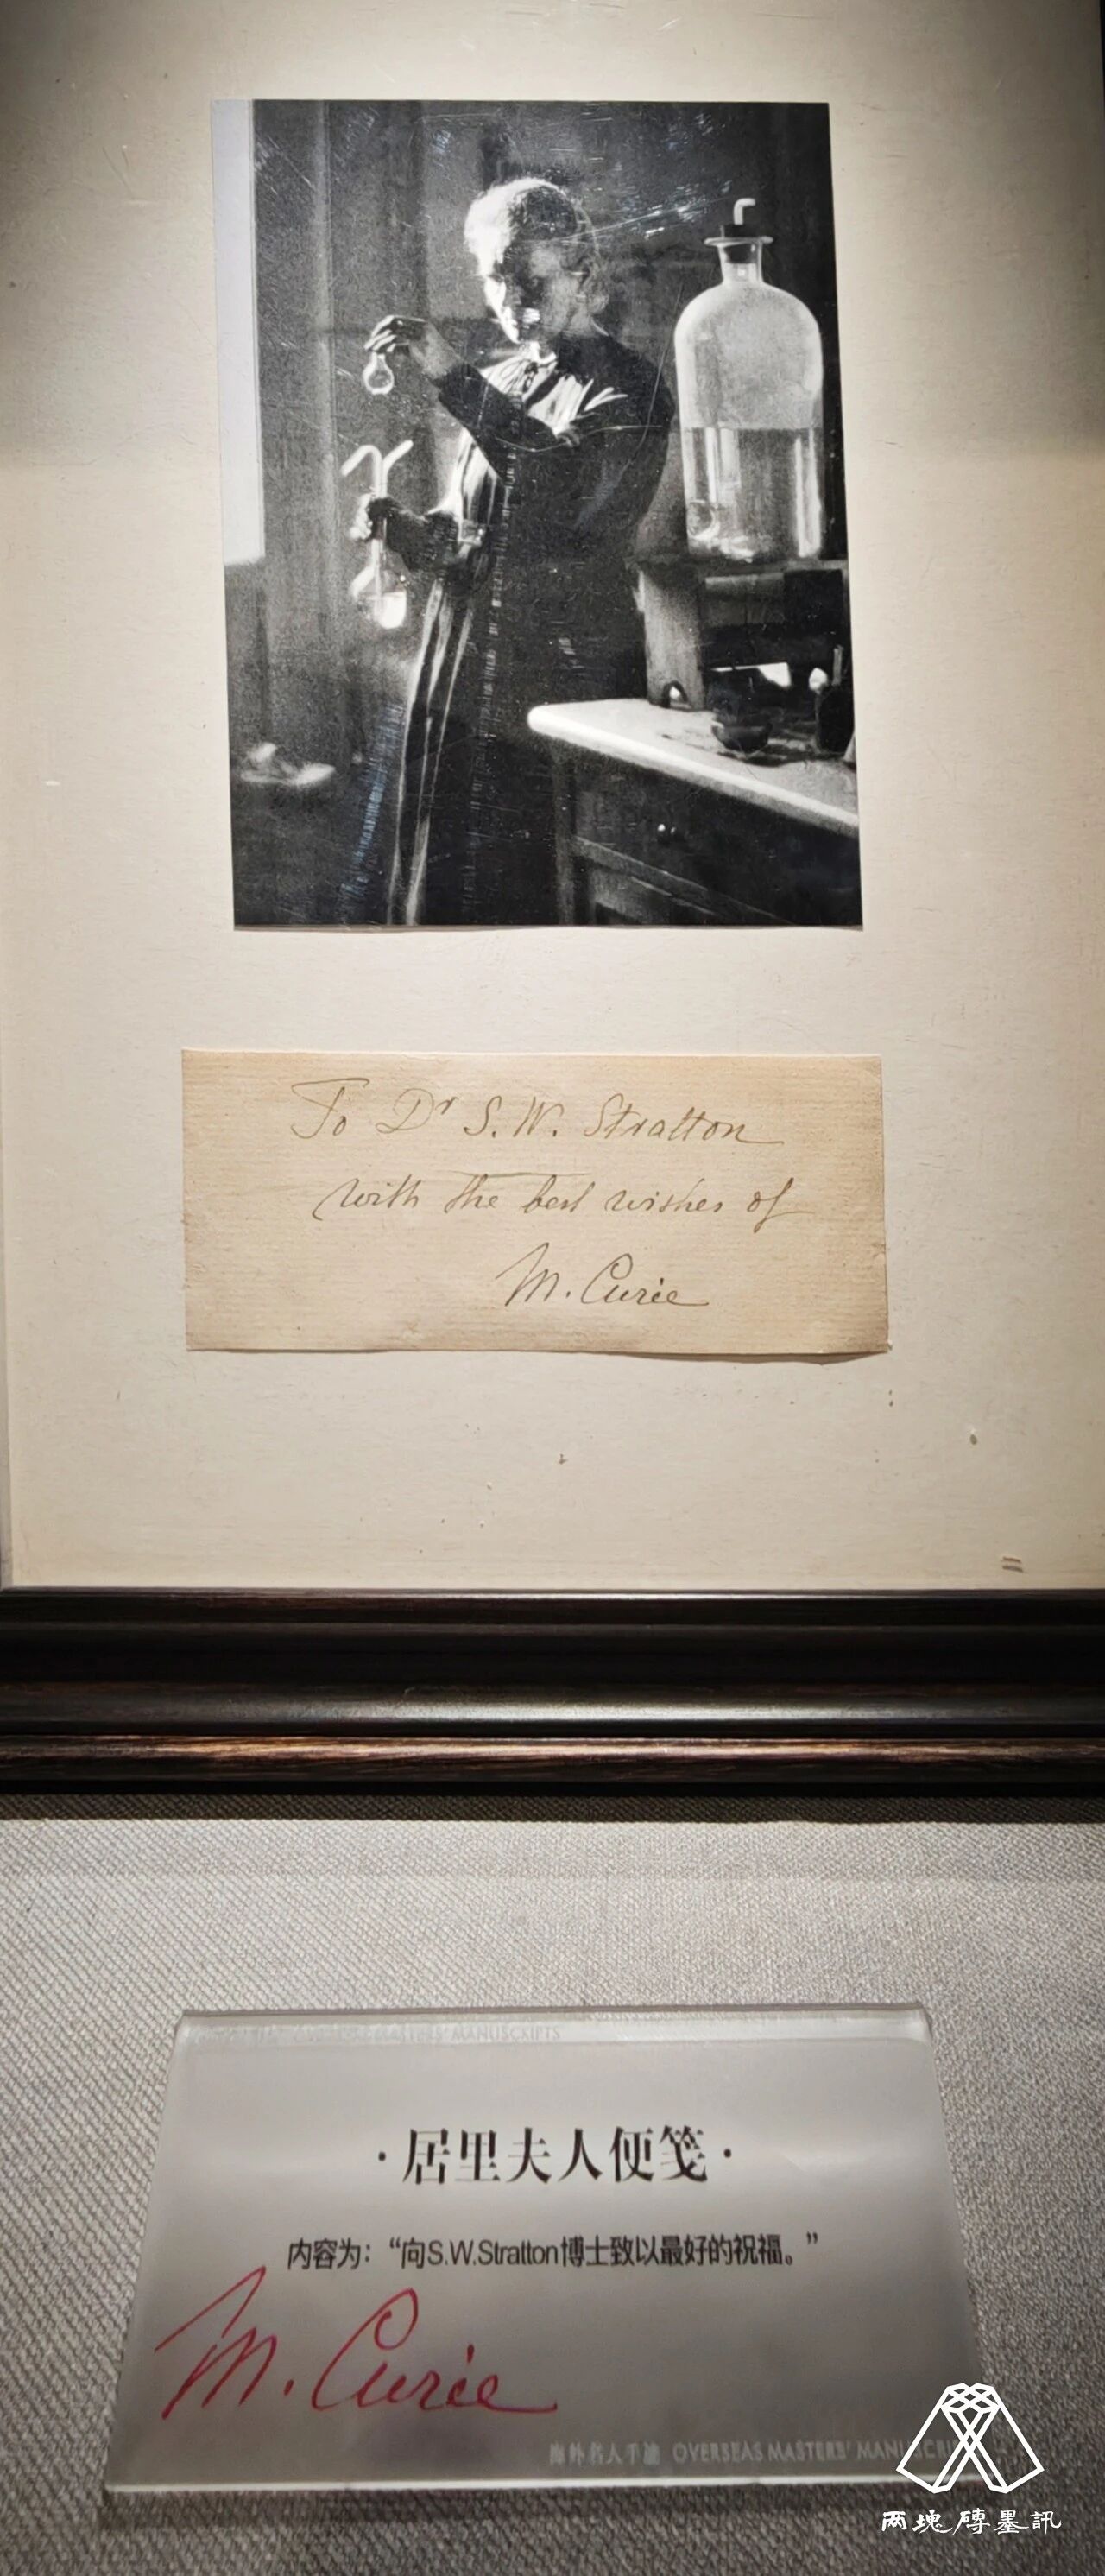 To Dr S. W. Stratton
with the best wishes of
M. Curie
MASTERS' MANUSCRIPTS
·居里夫人便笺·
内容为：“向S.W.Stratton博士致以最好的祝福。”
M. Curie
海外名人手迹 OVERSEAS MASTERS' MANUSCRI
两塊磚墨訊